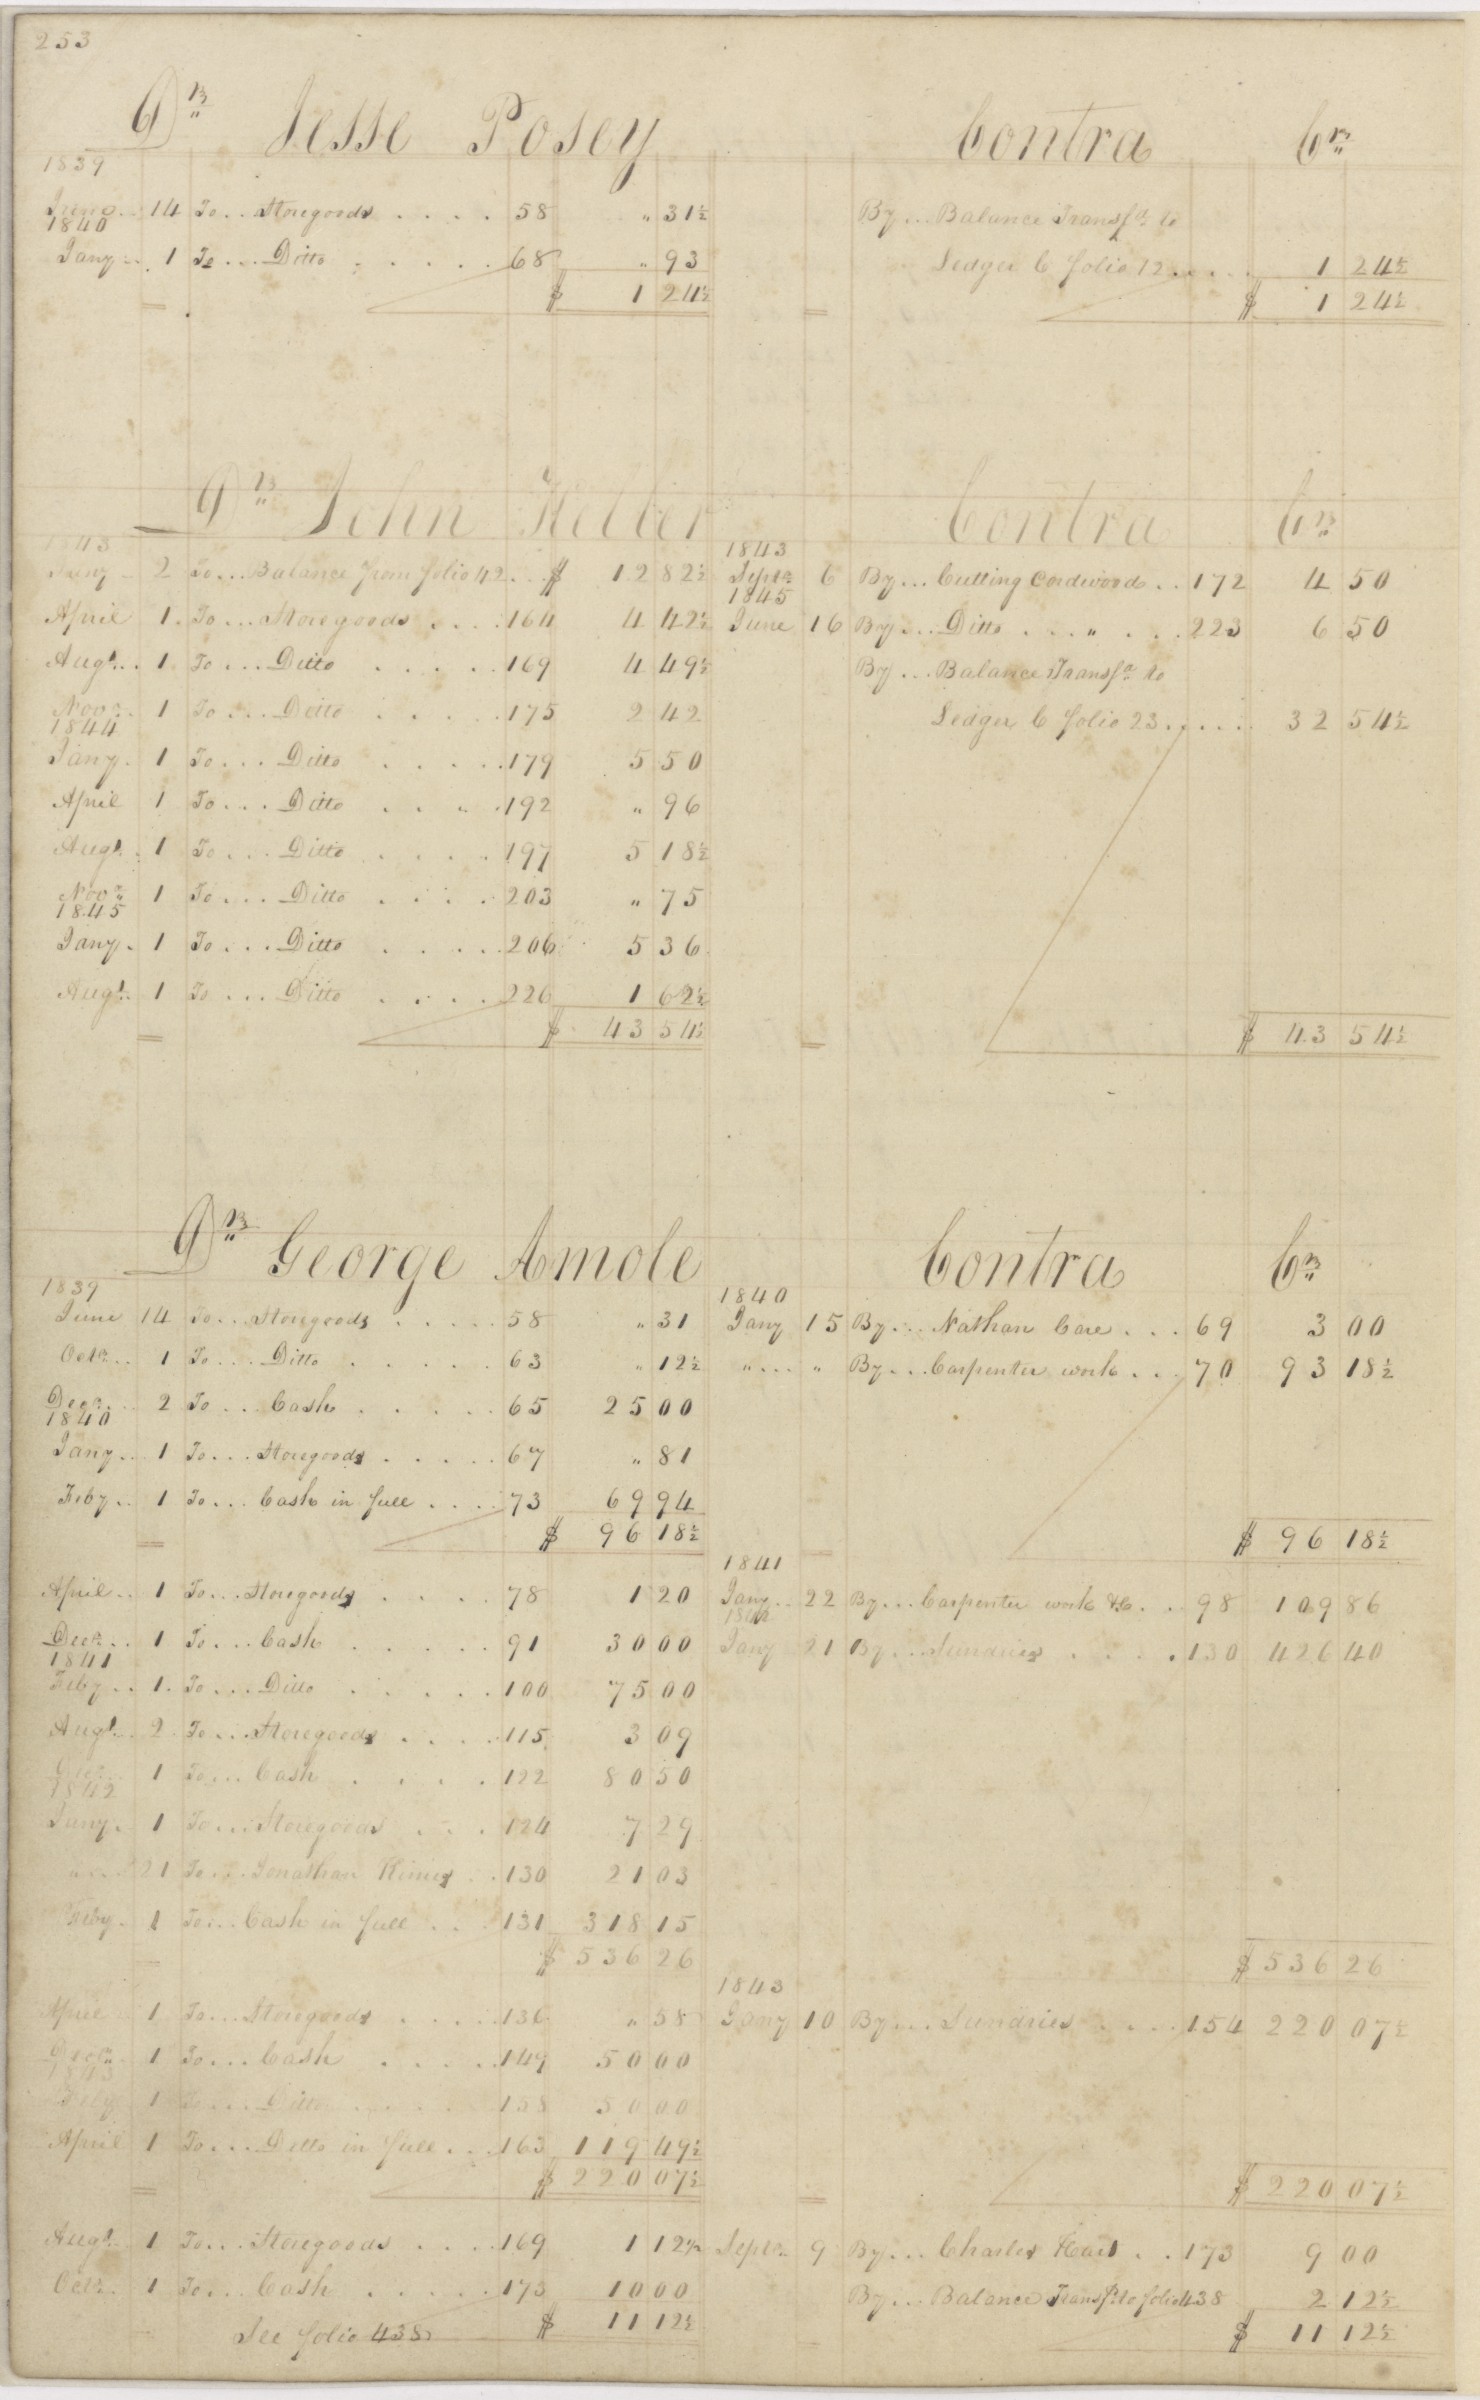 253
Dr Jesse Posey Contra Cr
1839
June 14 To... Storegoods .... 58 " 31½ By... Balance Transfd to
1840
Jany 1 To... Ditto ..... 68 " 93 Ledger C folio 12.... 1 24½
$ 1 24½ $ 1 24½
Dr John Keller Contra Cr
1843 1843
Jany 2 To... Balance from folio 42... $ 12 82½ Septr 6 By... Cutting Cordwood .. 172 4 50
1845
April 1 To... Storegoods .... 164 4 42½ June 16 By... Ditto ... " ... 223 6 50
Augt 1 To... Ditto ..... 169 4 49½ By... Balance Transfd to
Novr 1 To... Ditto ..... 175 2 42 Ledger C folio 23...... 32 54½
1844
Jany 1 To... Ditto ..... 179 5 50
April 1 To... Ditto .... 192 " 96
Augt 1 To... Ditto .... 197 5 18½
Novr 1 To... Ditto .... 203 " 75
1845
Jany 1 To... Ditto .... 206 5 36
Augt 1 To... Ditto .... 226 1 62½
$ 43 54½ $ 43 54½
Dr George Amole Contra Cr
1839 1840
June 14 To... Storegoods ..... 58 " 31 Jany 15 By... Nathan Care ... 69 3 00
Octr 1 To... Ditto ..... 63 " 12½ " ... " By... Carpenter work ... 70 93 18½
Decr 2 To... Cash ..... 65 25 00
1840
Jany 1 To... Storegoods ..... 67 " 81
Feby 1 To... Cash in full .... 73 69 94
$ 96 18½ $ 96 18½
1841
April 1 To... Storegoods .... 78 1 20 Jany 22 By... Carpenter work &c. .. 98 109 86
1842
Decr 1 To... Cash ..... 91 30 00 Jany 21 By... Sundries .... 130 426 40
1841
Feby 1 To... Ditto ..... 100 75 00
Augt 2 To... Storegoods .... 115 3 09
1 To... Cash .... 122 80 50
1842
Jany 1 To... Storegoods ... 124 7 29
" ... 21 To... Jonathan Rimes .. 130 21 03
Feby 1 To... Cash in full ... 131 318 15
$ 536 26 $ 536 26
1843
April 1 To... Storegoods ..... 136 " 58 Jany 10 By... Sundries .... 154 220 07½
Decr 1 To... Cash ..... 149 50 00
1843
Feby 1 To... Ditto ..... 158 50 00
April 1 To... Ditto in full ... 163 119 49½
$ 220 07½ $ 220 07½
Augt 1 To... Storegoods .... 169 1 12½ Septr 9 By... Charles .. 173 9 00
Octr 1 To... Cash ..... 173 10 00 By... Balance Transfd to folio 438 2 12½
See folio 438 $ 11 12½ $ 11 12½